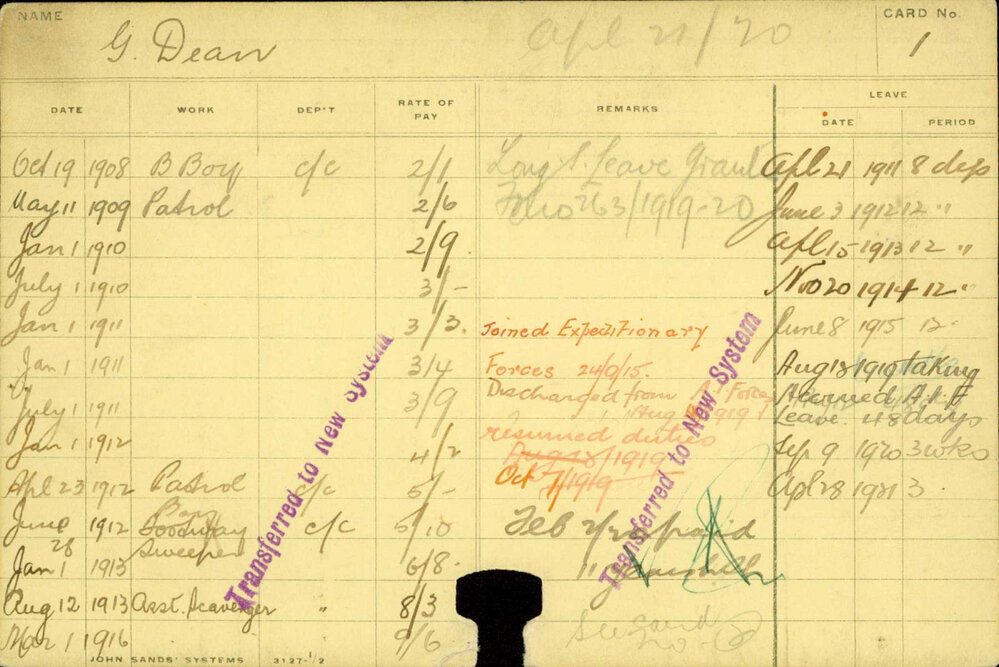 NAME G. Dean Apl 21/20 CARD No. 1
DATE WORK DEP'T RATE OF PAY REMARKS LEAVE DATE PERIOD
Oct 19 1908 B Boy c/c 2/1 Long S. Leave Apl 21 1911 8 days
May 11 1909 Patrol 2/6 263/1919-20 June 3 1912 12 "
Jan 1 1910 2/9 Apl 15 1913 12 "
July 1 1910 3/- Nov 20 1914 12 "
Jan 1 1911 3/3. Joined Expeditionary June 8 1915 12
Jan 1 1911 3/4 Forces 24/9/15. Aug 18 1919 taking
July 1 1911 3/9 Discharged from Forces Accrued A.I.F
Aug 1919 Leave. 48 days
Jan 1 1912 4/2 resumed duties Sep 9 1920 3 wks
Aug 18/1919
Apl 23 1912 Patrol c/c 5/- Oct 7/1919 Apl 28 1921 3
June 28 1912 Boy Footway Sweeper c/c 5/10 Feb 2/20 paid
Jan 1 1913 6/8
Aug 12 1913 Asst. Scavenger " 8/3
Mar 1 1916 9/6 See card No 2
Transferred to New System
Transferred to New System
JOHN SANDS' SYSTEMS 3127-1/2